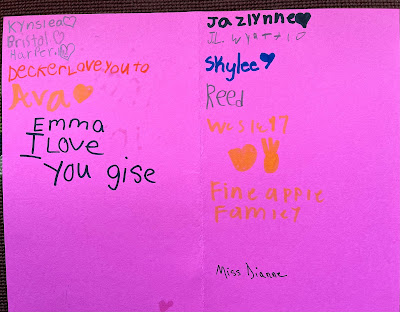 Kynslea
Bristol
Harper
DECKER LOVE YOU TO
Ava
Emma
I LOVE
You gise
Jazlynne
Skylee
Reed
Fineapple
Family
Miss Dianne